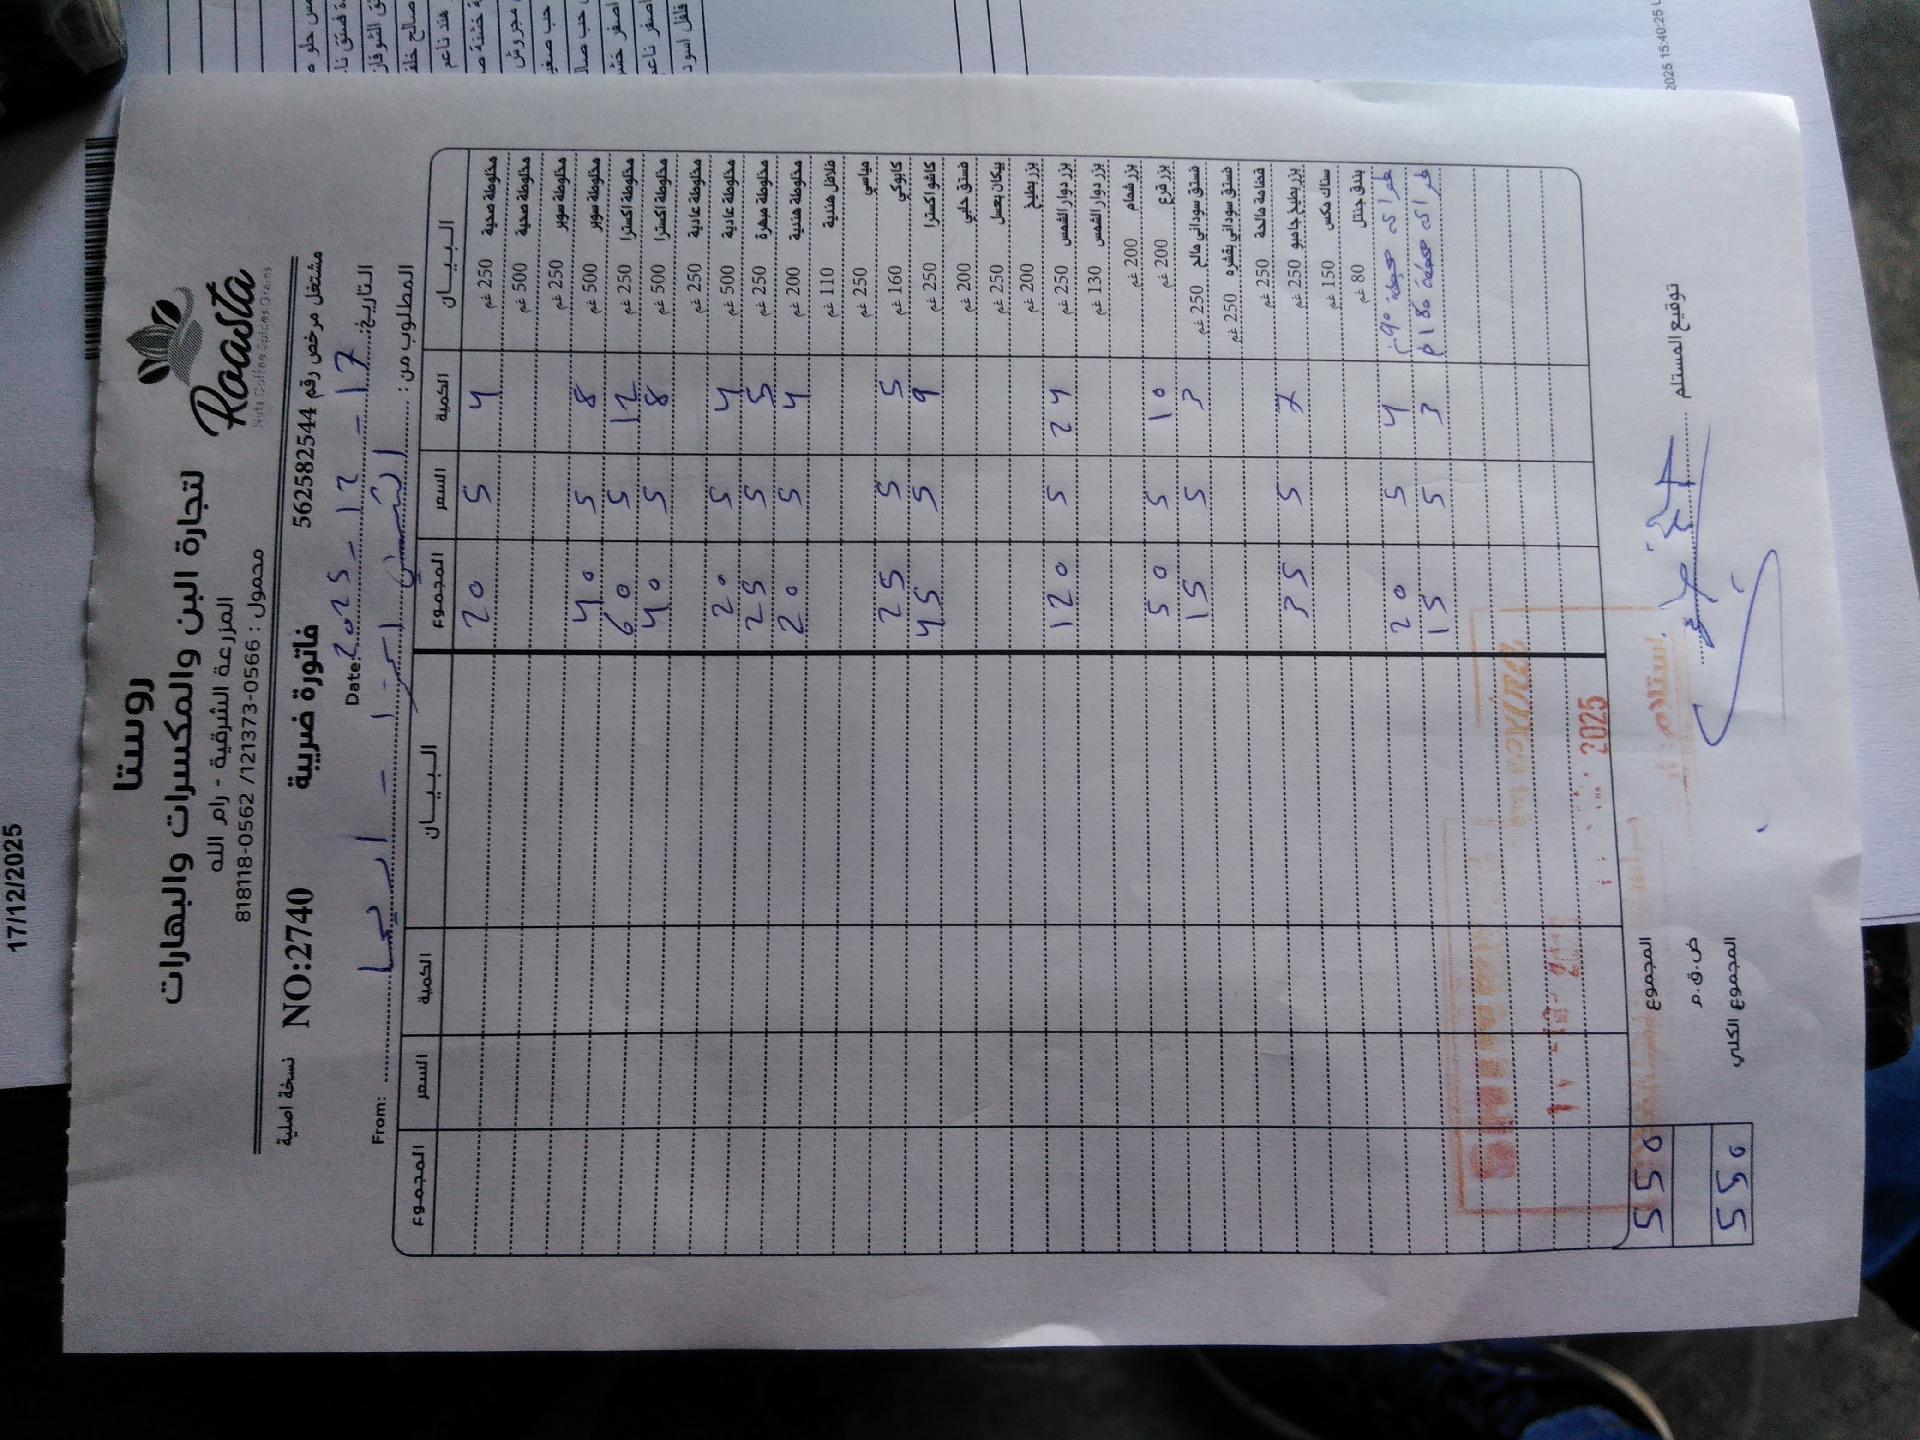 17/12/2025
روستا
لتجارة البن والمكسرات والبهارات
المزرعة الشرقية - رام الله
محمول : 0566-121373/ 0562-818118
Roasta
Nuts Coffee Spices Grains
مشتغل مرخص رقم 562582544
فاتورة ضريبية
NO:2740
نسخة اصلية
التاريخ: 17 - 12 - 2025 Date:
المطلوب من : From:
البيـــان الكمية السعر المجموع البيـــان الكمية السعر المجموع
مخلوطة صحية 250 غم 4 5 20
مخلوطة صحية 500 غم
مخلوطة سوبر 250 غم
مخلوطة سوبر 500 غم 8 5 40
مخلوطة اكسترا 250 غم 12 5 60
مخلوطة اكسترا 500 غم 8 5 40
مخلوطة عادية 250 غم
مخلوطة عادية 500 غم 4 5 20
مخلوطة مبهرة 250 غم 5 5 25
مخلوطة هندية 200 غم 4 5 20
فلافل هندية 110 غم
عباسي 250 غم
كابوكي 160 غم 5 5 25
كاشو اكسترا 250 غم 9 5 45
فستق حلبي 200 غم
بيكان بعسل 250 غم
بزر بطيخ 200 غم
بزر دوار الشمس 250 غم 24 5 120
بزر دوار الشمس 130 غم
بزر شمام 200 غم
بزر قرع 200 غم 10 5 50
فستق سوداني مالح 250 غم 3 5 15
فستق سوداني بقشره 250 غم
قضامة مالحة 250 غم
بزر بطيخ جامبو 250 غم 7 5 35
سناك مكس 150 غم
بندق جنتل 80 غم
4 5 20
3 5 15
2025
المجموع 550
ض.ق.م
المجموع الكلي 550
توقيع المستلم
2025 15:40:25